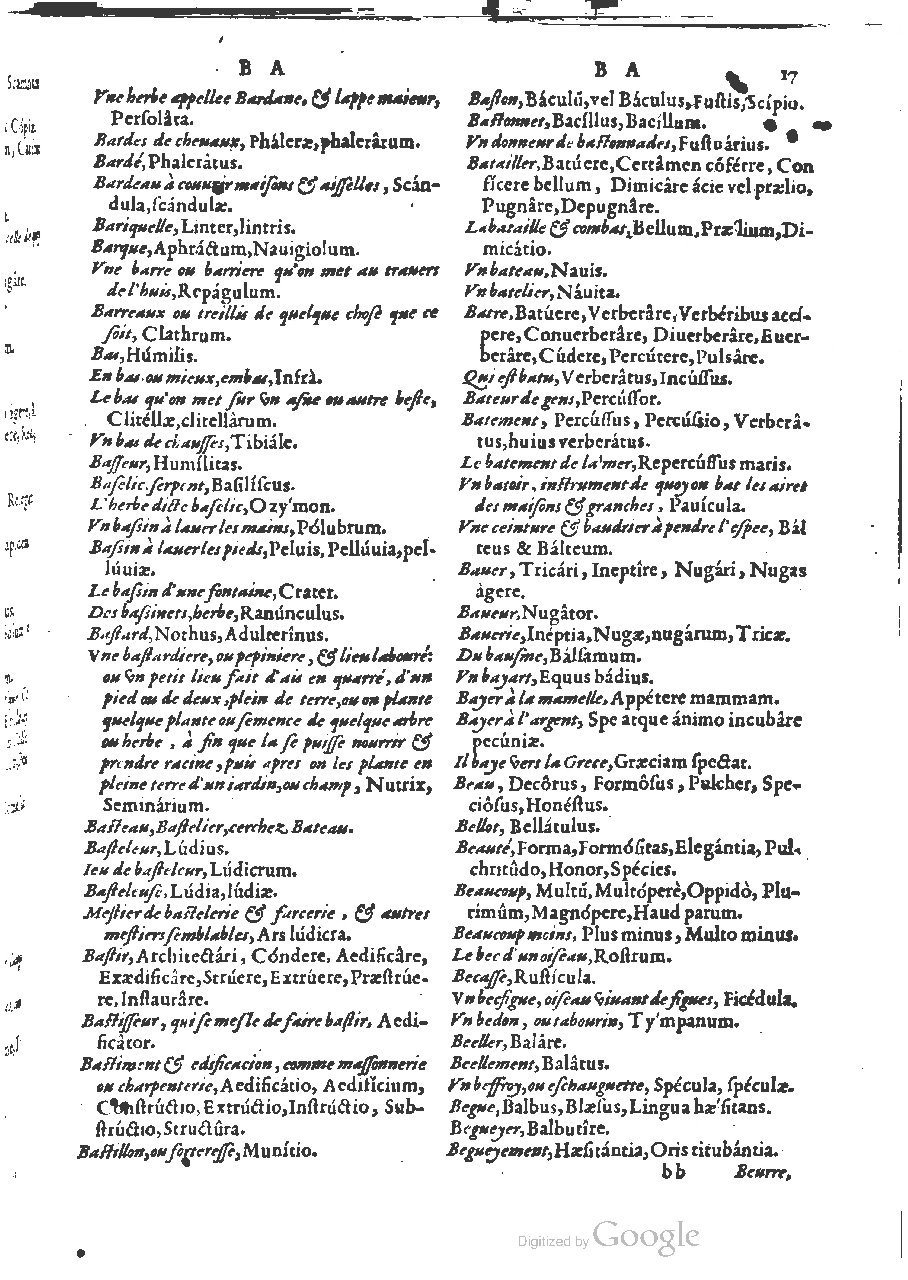 B A
Vne herbe appellee Bardane, & lappe maieur,
Persolâta.
Bardes de cheuaux, Pháleræ, phalerârum.
Bardé, Phalerâtus.
Bardeau à couurir maisons & aisselles, Scán-
dula, scándulæ.
Bariquelle, Linter, lintris.
Barque, Aphráctum, Nauigiolum.
Vne barre ou barriere qu'on met au trauers
de l'huis, Repágulum.
Barreaux ou treillis de quelque chose que ce
soit, Clathrum.
Bas, Húmilis.
En bas. ou mieux, embas, Infrà.
Le bas qu'on met sur vn asne ou autre beste,
Clitéllæ, clitellàrum.
Vn bas de chausses, Tibiále.
Basseur, Humílitas.
Baselic, serpent, Basilíscus.
L'herbe dicte baselic, Ozy'mon.
Vn bassin à lauer les mains, Pólubrum.
Bassin à lauer les pieds, Peluis, Pellúuia, pel-
lúuiæ.
Le bassin d'vne fontaine, Crater.
Des bassinets, herbe, Ranúnculus.
Bastard, Nothus, Adulterínus.
Vne bastardiere, ou pepiniere, & lieu labouré:
ou vn petit lieu fait d'ais en quarré, d'vn
pied ou de deux, plein de terre, ou on plante
quelque plante ou semence de quelque arbre
ou herbe, à fin que la se puisse nourrir &
prendre racine, puis apres on les plante en
pleine terre d'vn iardin, ou champ, Nutrix,
Seminárium.
Basteau, Bastelier, cerchez Bateau.
Basteleur, Lúdius.
Ieu de basteleur, Lúdicrum.
Basteleuse, Lúdia, lúdiæ.
Mestier de bastelerie & farcerie, & autres
mestiers semblables, Ars lúdicra.
Bastir, Architectári, Cóndere, Aedificâre,
Exædificâre, Strúere, Extrúere, Præstrúe-
re, Instaurâre.
Bastisseur, qui se mesle de faire bastir, Aedi-
ficâtor.
Bastiment & edificacion, comme massonnerie
ou charpenterie, Aedificátio, Aedifícium,
Constrúctio, Extrúctio, Instrúctio, Sub-
strúctio, Structûra.
Bastillon, ou forteresse, Munítio.
B A
17
Baston, Báculũ, vel Báculus, Fustis, Scípio.
Bastonnet, Bacíllus, Bacillum.
Vn donneur de bastonnades, Fustuárius.
Batailler, Batúere, Certâmen cõférre, Con
fícere bellum, Dimicâre ácie vel prælio,
Pugnâre, Depugnâre.
La bataille & combat, Bellum, Prælium, Di-
micátio.
Vn bateau, Nauis.
Vn batelier, Náuita.
Batre, Batúere, Verberâre, Verbéribus accí-
pere, Conuerberâre, Diuerberâre, Euer-
berâre, Cúdere, Percútere, Pulsâre.
Qui est batu, Verberâtus, Incússus.
Bateur de gens, Percússor.
Batement, Percússus, Percússio, Verberâ-
tus, huius verberátus.
Le batement de la mer, Repercússus maris.
Vn batoir, instrument de quoy on bat les aires
des maisons & granches, Pauícula.
Vne ceinture & baudrier à pendre l'espee, Bál
teus & Bálteum.
Bauer, Tricári, Ineptîre, Nugári, Nugas
àgere.
Baueur, Nugâtor.
Bauerie, Inéptia, Nugæ, nugárum, Tricæ.
Du bausme, Bálsamum.
Vn bayart, Equus bádius.
Bayer à la mamelle, Appétere mammam.
Bayer à l'argent, Spe atque ánimo incubâre
pecúniæ.
Il baye vers la Grece, Græciam spectat.
Beau, Decôrus, Formôsus, Pulcher, Spe-
ciôsus, Honéstus.
Bellot, Bellátulus.
Beauté, Forma, Formósitas, Elegántia, Pul-
chritûdo, Honor, Spécies.
Beaucoup, Multũ, Multóperè, Oppidò, Plu-
rimûm, Magnópere, Haud parum.
Beaucoup moins, Plus minus, Multo minus.
Le bec d'un oiseau, Rostrum.
Becasse, Rustícula.
Vn becfigue, oiseau viuant de figues, Ficédula.
Vn bedon, ou tabourin, Ty'mpanum.
Beeller, Baláre.
Beellement, Balâtus.
Vn beffroy, ou eschauguette, Spécula, spéculæ.
Begue, Balbus, Blæsus, Lingua hæ'sitans.
Begueyer, Balbutîre.
Begueyement, Hæsitántia, Oris titubántia.
bb
Beurre,
Digitized by Google